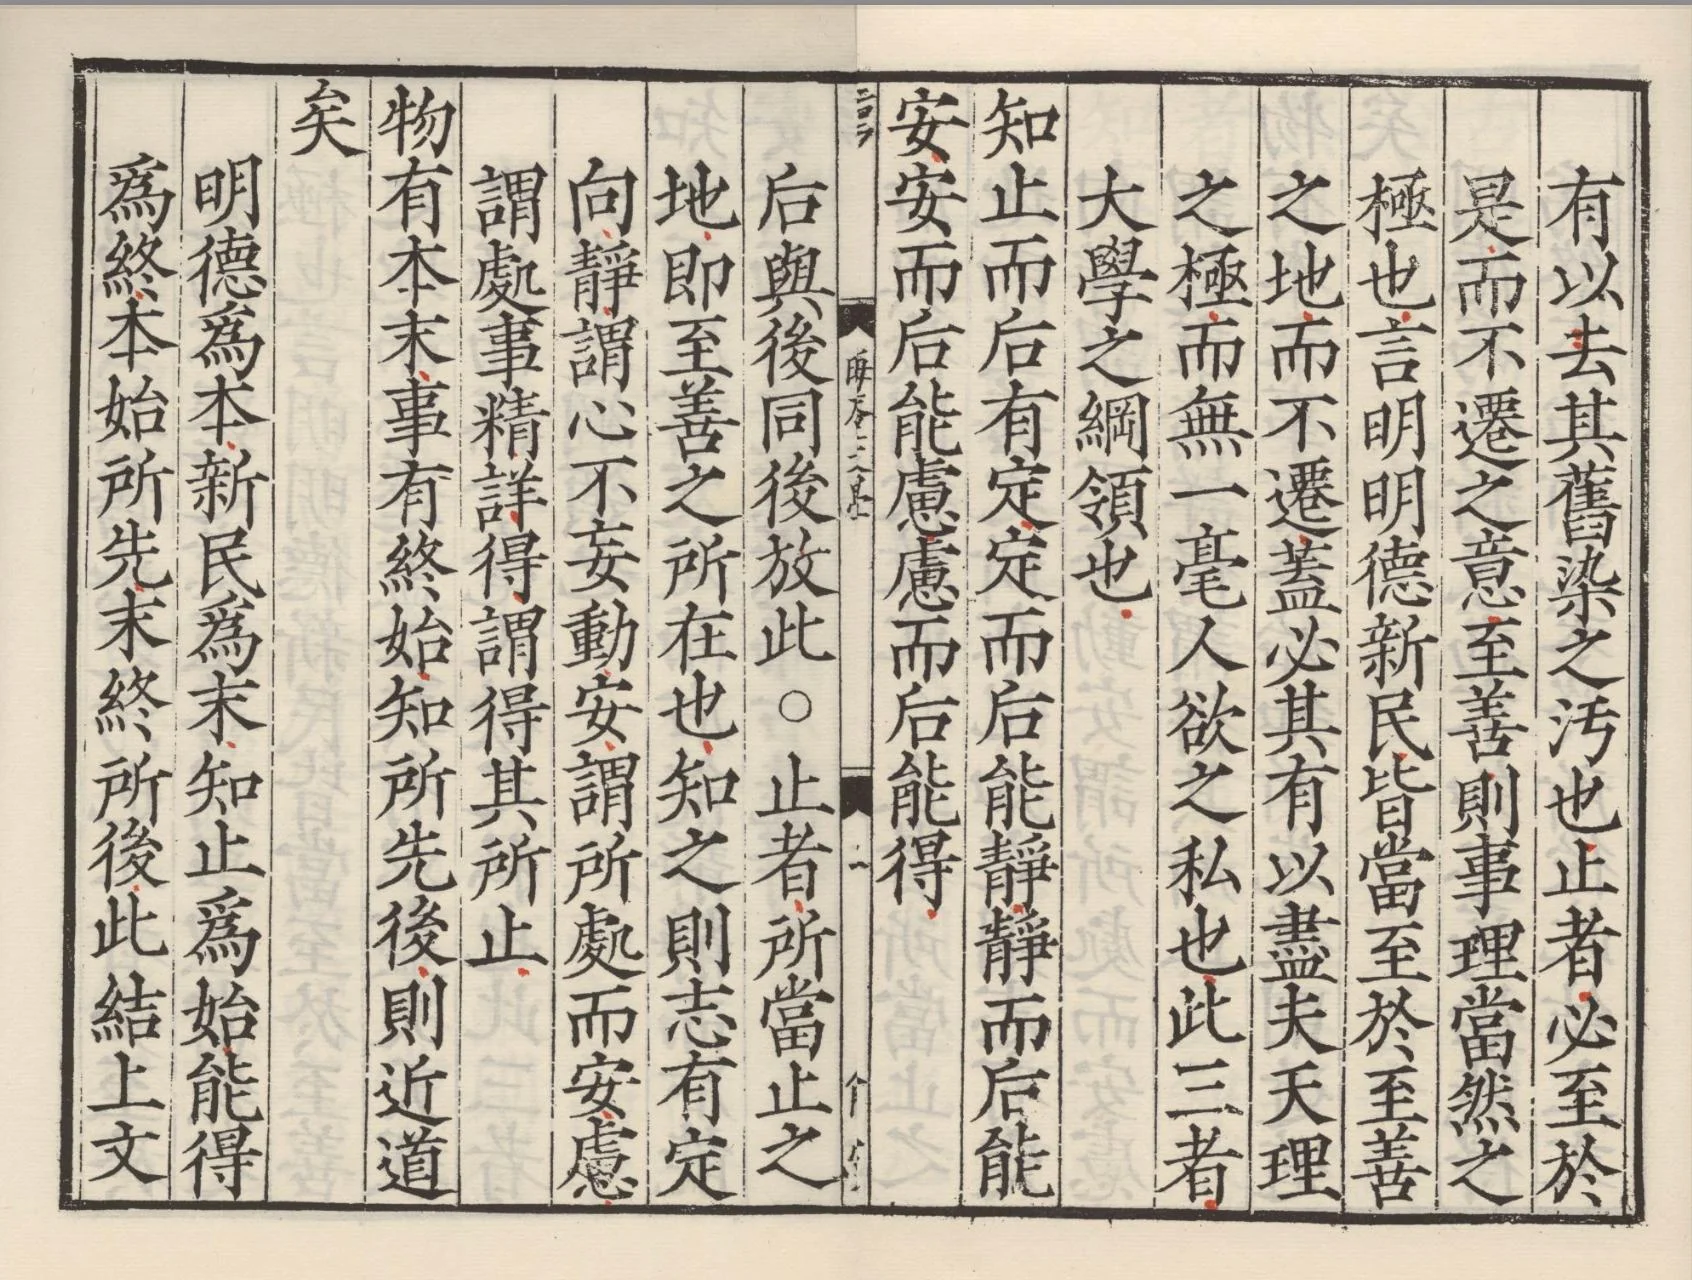 有以去其舊染之汚也止者必至於
是而不遷之意至善則事理當然之
極也言明明德新民皆當至於至善
之地而不遷蓋必其有以盡夫天理
之極而無一毫人欲之私也此三者
大學之綱領也
知止而后有定定而后能靜靜而后能
安安而后能慮慮而后能得
后與後同後放此○止者所當止之
地即至善之所在也知之則志有定
向靜謂心不妄動安謂所處而安慮
謂處事精詳得謂得其所止
物有本末事有終始知所先後則近道
矣
明德爲本新民爲末知止爲始能得
爲終本始所先末終所後此結上文